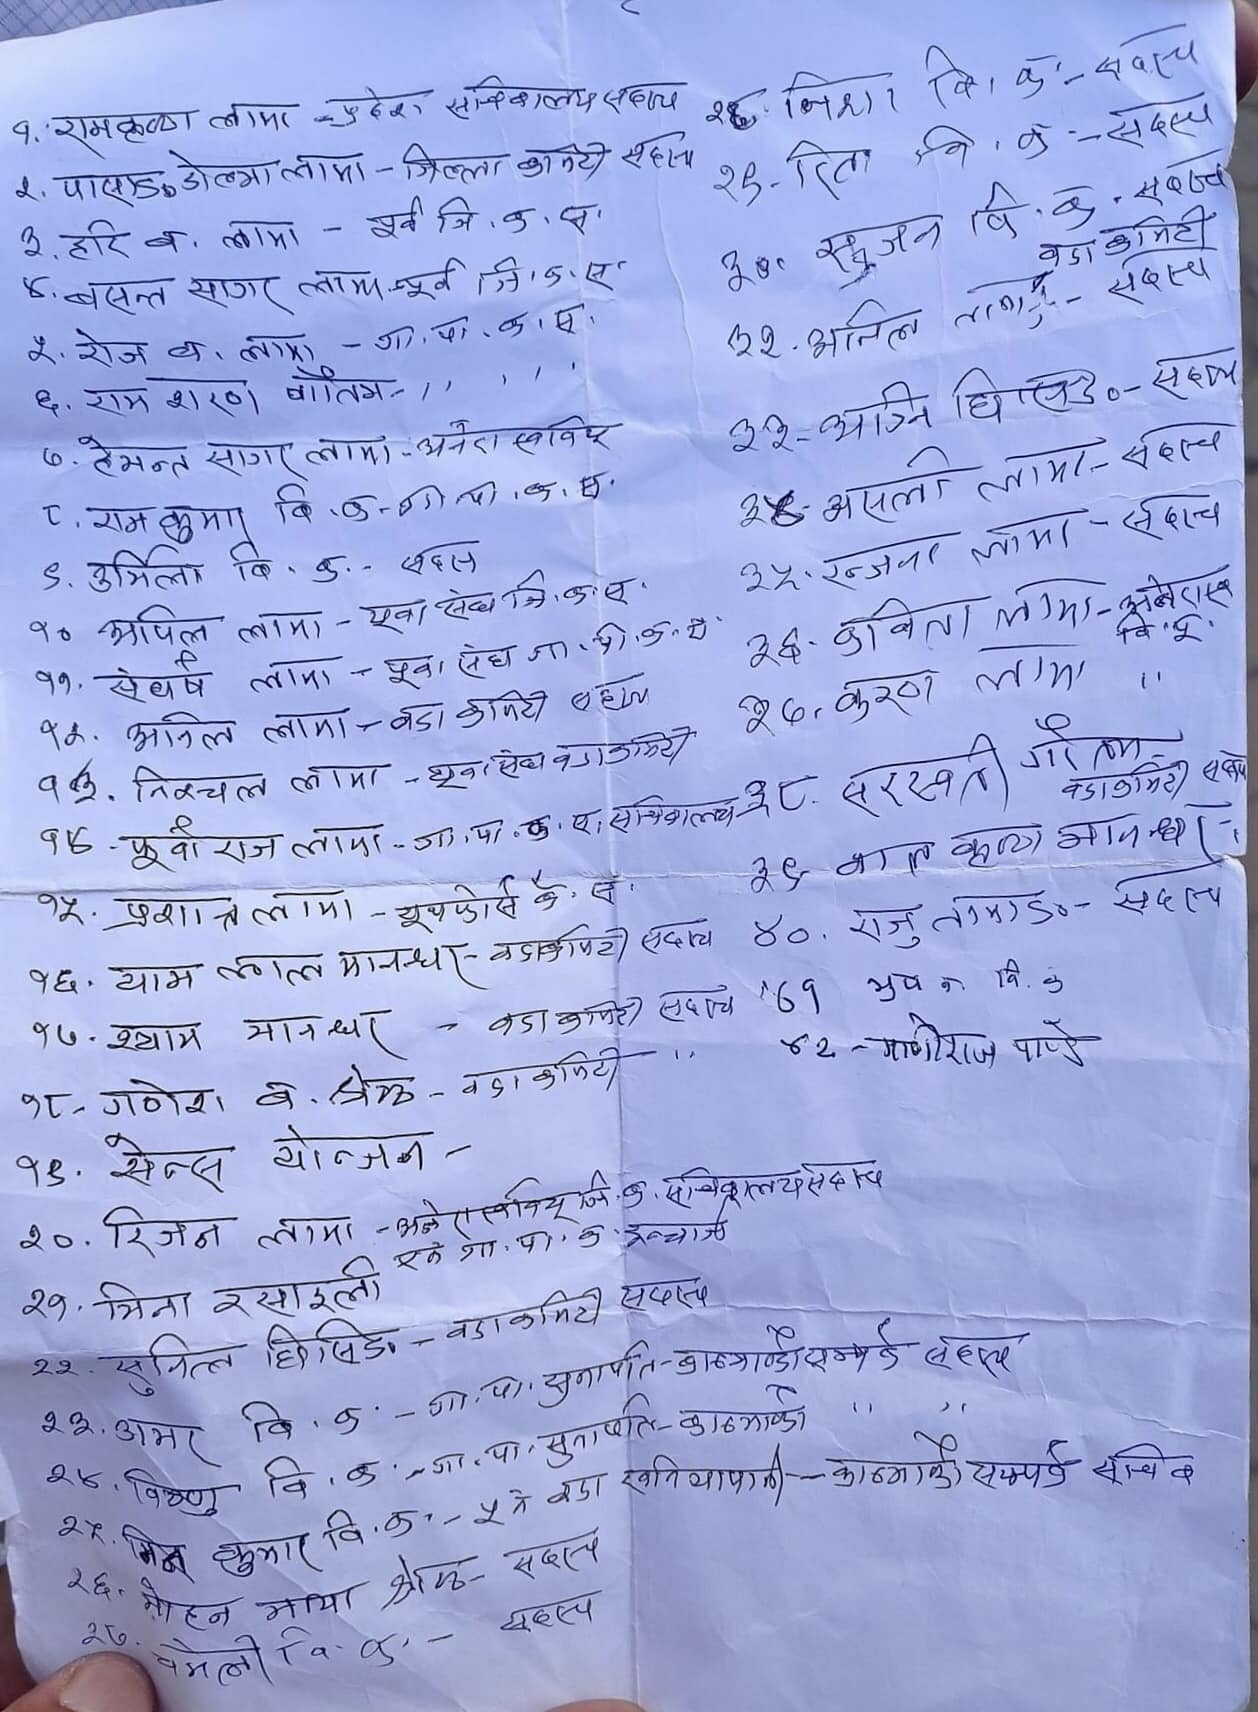 १. रामकृष्ण लामा - प्रदेश सचिवालय सदस्य
२. पासाङ डोल्मा लामा - जिल्ला कमिटी सदस्य
३. हरि ब. लामा - पूर्व जि. क. स.
४. बसन्त सागर लामा - पूर्व जि. क. स.
५. रोज ब. लामा - गा. पा. क. स.
६. राम शरण गौतम - ,, ,, ,,
७. हेमन्त सागर लामा - अनेरास्ववियु
८. रामकुमार वि. क - गा. पा. क. स.
९. उर्मिला वि. क. - सदस्य
१० अपिल लामा - युवा संघ जि. क. स.
११. संघर्ष लामा - युवा संघ गा. पा. क. स.
१२. अनिल लामा - वडा कमिटी सदस्य
१३. निश्चल लामा - युवा संघ वडा कमिटी
१४. पूर्वी राज लामा - गा. पा. क. स. सचिवालय
१५. प्रशान्त लामा - युथफोर्स के. स.
१६. याम लाल मानन्धर - वडा कमिटी सदस्य
१७. श्याम मानन्धर - वडा कमिटी सदस्य
१८ - गणेश ब. श्रेष्ठ - वडा कमिटी ,,
१९. सेन्स योन्जन -
२०. रिजन लामा - अनेरास्ववियु जि. क. सचिवालय सदस्य
एवं गा. पा. क. इन्चार्ज
२१. मिना रसाइली
२२. सुनिल घिसिङ - वडा कमिटी सदस्य
२३. अमर वि. क. - गा. पा. सुनापति - काठमाण्डौ सम्पर्क सदस्य
२४. विष्णु वि. क. - गा. पा. सुनापति - काठमाडौ ,, ,,
२५. मिन कुमार वि. क. - ५ नं वडा खनियापानी - काठमाडौ सम्पर्क सचिव
२६. मोहन माया श्रेष्ठ - सदस्य
२७. चमेली वि. क. - सदस्य
२८. निशा वि. क. - सदस्य
२९ - रिता वि. क. - सदस्य
३०. सृजन वि. क. - सदस्य
वडा कमिटी
३२. अनिल - सदस्य
३३ - अग्नि घिसिङ - सदस्य
३४ - असली लामा - सदस्य
३५. रन्जना लामा - सदस्य
३६. कविता लामा - अनेरास्व
वि. यु.
३७. करण लामा ,,
३८. सरस्वती गौतम -
वडा कमिटी सदस्य
३९ - बाल कृष्ण मानन्धर -
४०. राजु तामाङ - सदस्य
४१ वि. क
४२ - मणीराज पाण्डे